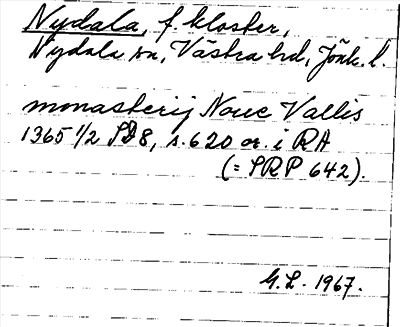 Nydala, f. kloster,
Nydala sn, Västra hd, Jönk. l.
monasterij Noue Vallis
1365 1/2 SD8, s. 620 or. i RA
(= SRP 642).
G. L. 1967.